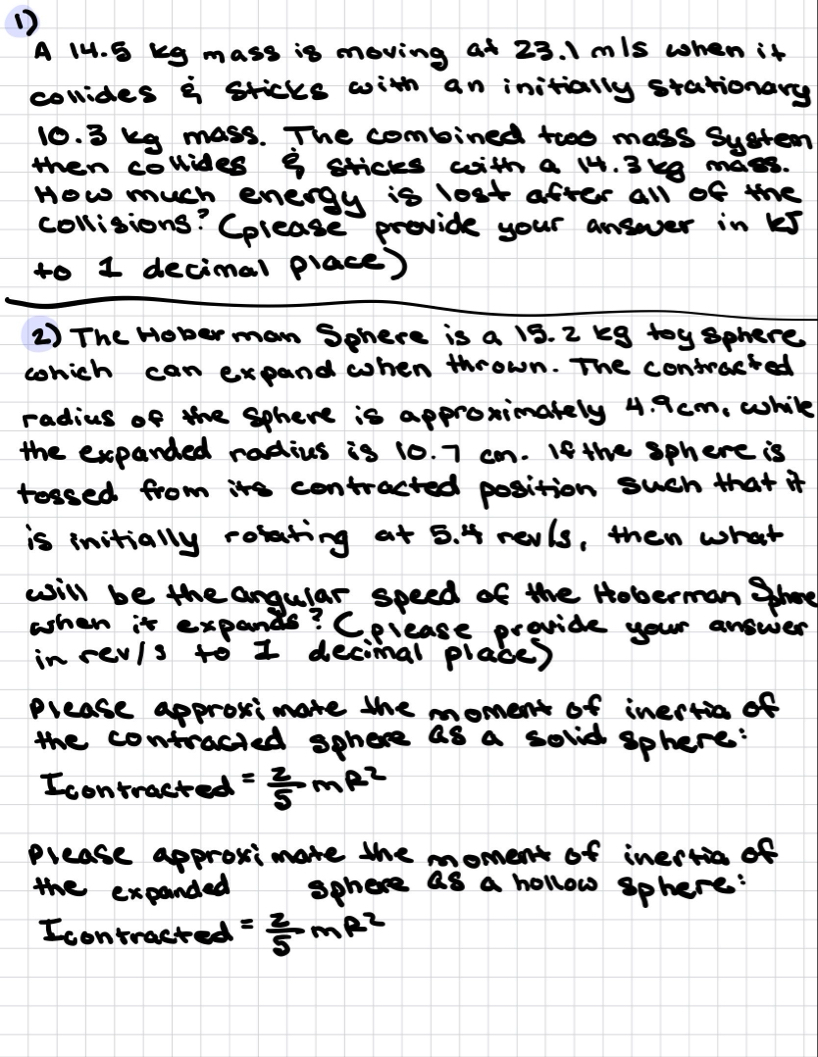 1)
A 14.5 kg mass is moving at 23.1 m/s when it
collides & sticks with an initially stationary
10.3 kg mass. The combined two mass system
then collides & sticks with a 14.3 kg mass.
How much energy is lost after all of the
collisions? (please provide your answer in kJ
to 1 decimal place)
2) The Hoberman Sphere is a 15.2 kg toy sphere
which can expand when thrown. The contracted
radius of the sphere is approximately 4.9 cm, while
the expanded radius is 10.7 cm. If the sphere is
tossed from its contracted position such that it
is initially rotating at 5.4 rev/s, then what
will be the angular speed of the Hoberman Sphere
when it expands? (please provide your answer
in rev/s to 1 decimal place)
Please approximate the moment of inertia of
the contracted sphere as a solid sphere:
Icontracted = 2/5 mR²
Please approximate the moment of inertia of
the expanded sphere as a hollow sphere:
Icontracted = 2/5 mR²